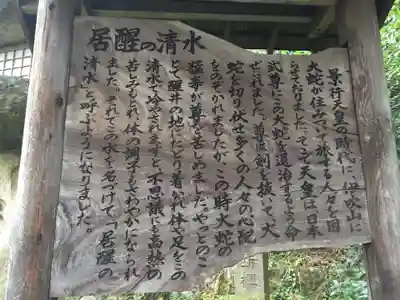 居醒の清水
景行天皇の時代に、伊吹山に
大蛇が住みついて旅する人々を困
せておりました。そこで天皇は、日本
武尊にこの大蛇を退治するよう命
ぜられました。尊は剣を抜いて、大
蛇を切り伏せ多くの人々の心配
をのぞかれましたが、この時大蛇の
猛毒が尊を苦しめました。やっとのこ
とで醒井の地にたどり着かれ体や足をこの
清水で冷やされますと、不思議にも高熱の
苦しみもとれ、体の調子もさわやかになられ
ました。それでこの水を名づけて、「居醒の
清水」と呼ぶようになりました。